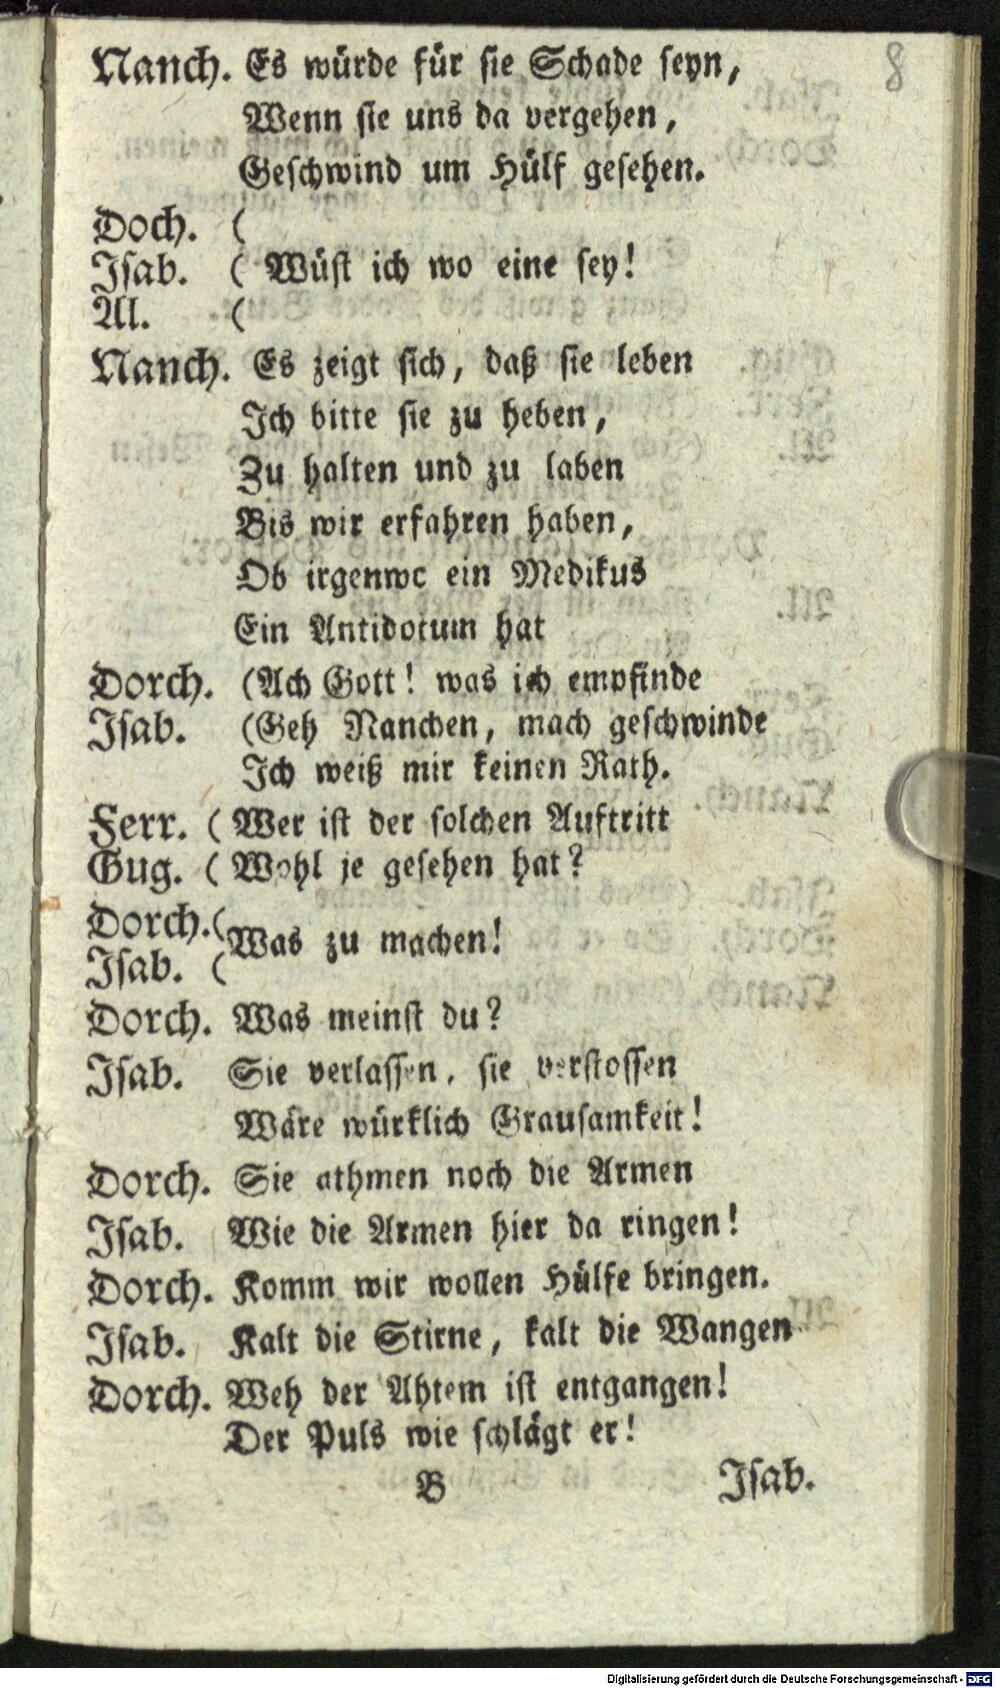 8
Nanch. Es würde für sie Schade seyn,
Wenn sie uns da vergehen,
Geschwind um Hülf gesehen.
Doch. (
Isab. ( Wüst ich wo eine sey!
Al. (
Nanch. Es zeigt sich, daß sie leben
Ich bitte sie zu heben,
Zu halten und zu laben
Bis wir erfahren haben,
Ob irgenwo ein Medikus
Ein Antidotum hat
Dorch. (Ach Gott! was ich empfinde
Isab. (Geh Nanchen, mach geschwinde
Ich weiß mir keinen Rath.
Ferr. ( Wer ist der solchen Auftritt
Gug. ( Wohl je gesehen hat?
Dorch.(
Was zu machen!
Isab. (
Dorch. Was meinst du?
Isab. Sie verlassen, sie verstossen
Wäre würklich Grausamkeit!
Dorch. Sie athmen noch die Armen
Isab. Wie die Armen hier da ringen!
Dorch. Komm wir wollen Hülfe bringen.
Isab. Kalt die Stirne, kalt die Wangen
Dorch. Weh der Ahtem ist entgangen!
Der Puls wie schlägt er!
B Isab.
Digitalisierung gefördert durch die Deutsche Forschungsgemeinschaft - DFG